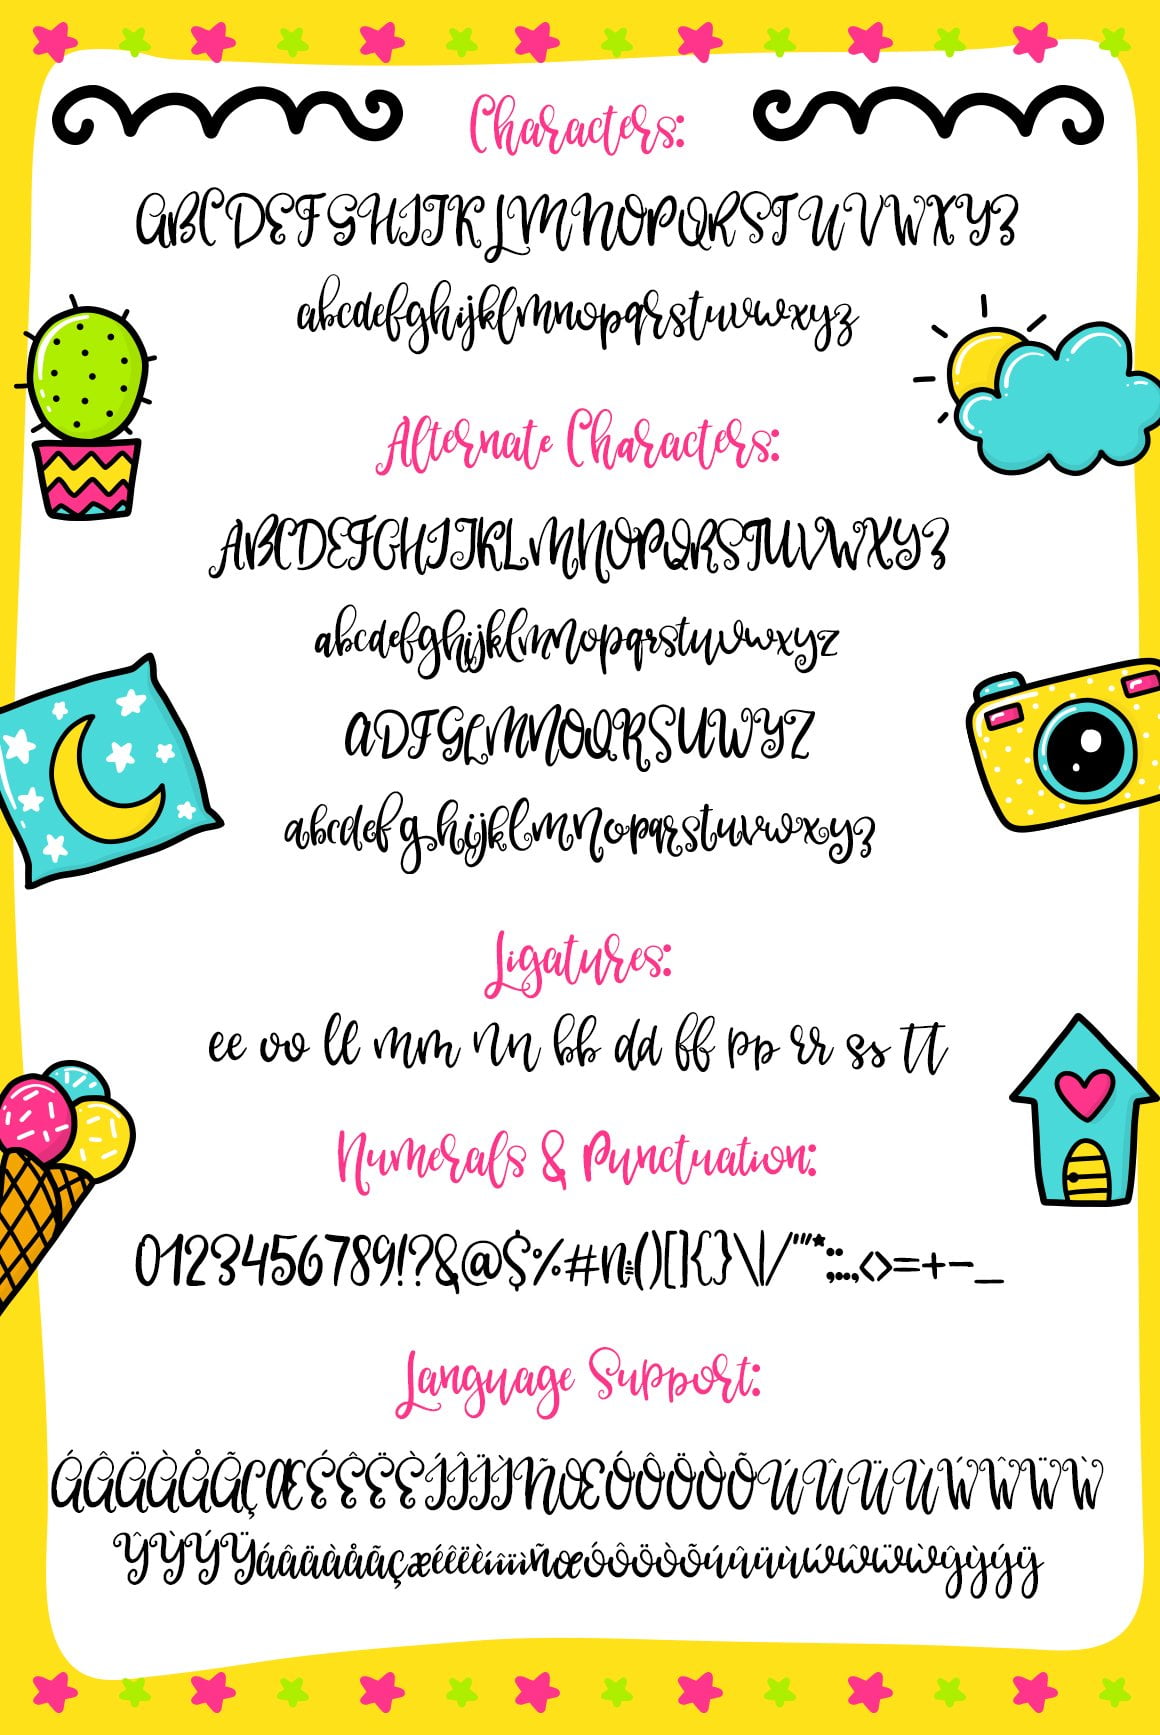 Characters:
ABCDEFGHIJKLMNOPQRSTUVWXYZ
abcdefghijklmnopqrstuvwxyz
Alternate Characters:
ABCDEFGHIJKLMNOPQRSTUVWXYZ
abcdefghijklmnopqrstuvwxyz
ADFGLMNOQRSUWYZ
abcdefghijklmnopqrstuvwxyz
Ligatures:
ee oo ll mm nn bb dd ff pp rr ss tt
Numerals & Punctuation:
0123456789!?&@$%#n:()[]{}\|/"'*;:..,<>=+-_
Language Support:
ÁÂÄÀÅÃÇÆÉÊËÈÍÎÏÌÑŒÓÔÖÒÕÚÛÜÙẂŴẄẀ
ŶỲÝŸáâäàåãçæéêëèíîïìñœóôöòõúûüùẃŵẅẁŷỳýÿ